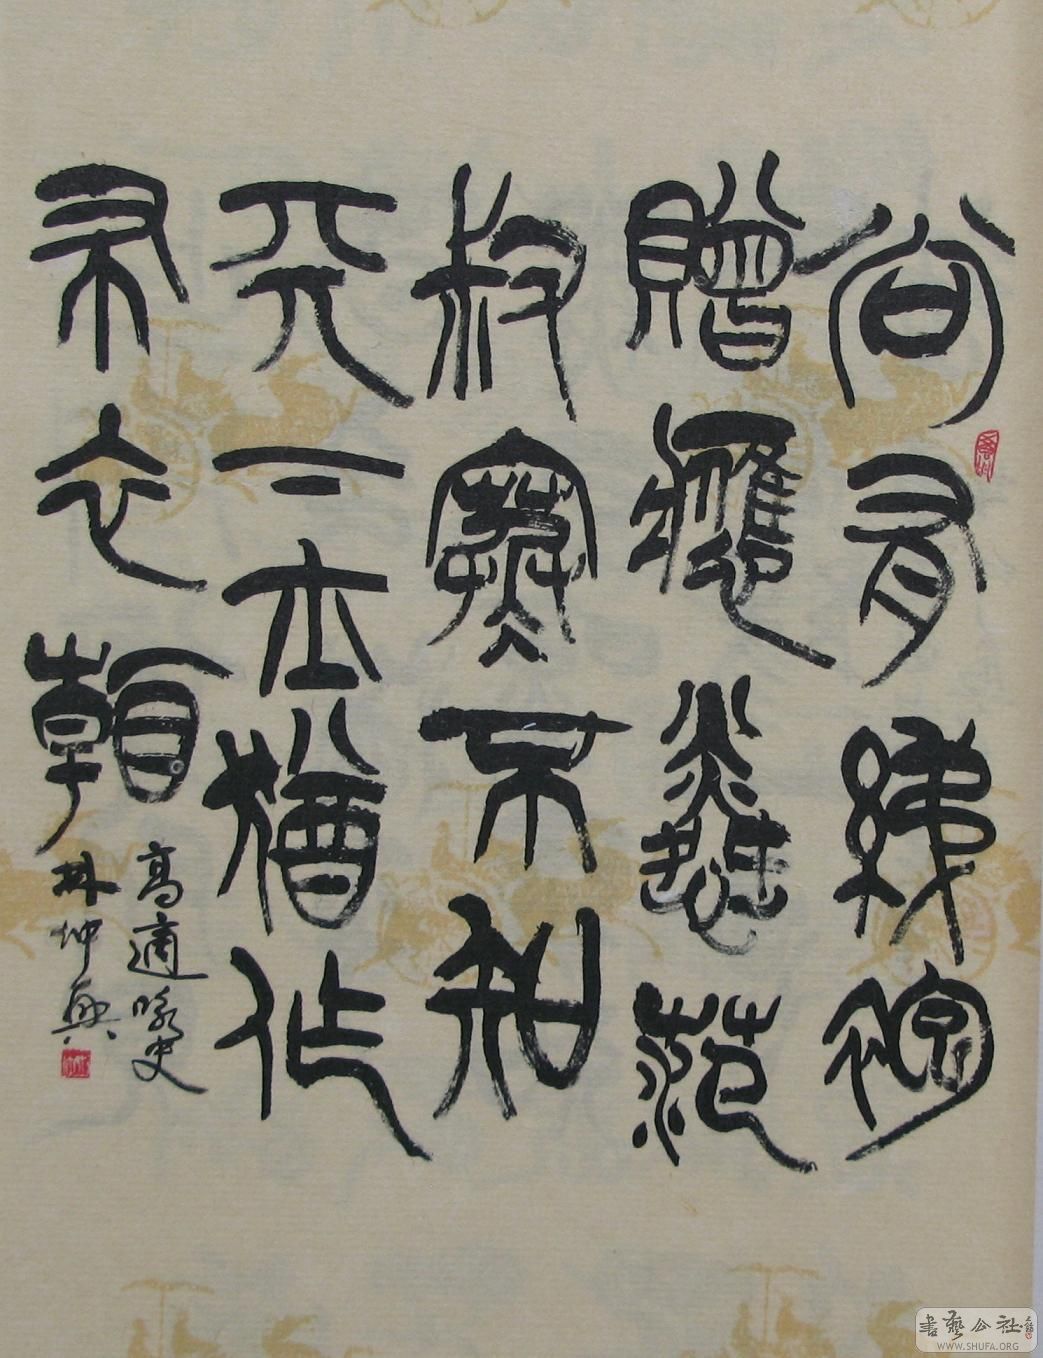 尚有綈袍
贈應憐范
叔寒不知
天下士猶作
布衣看
高適咏史
林坤興
書藝公社
WWW.SHUFA.ORG